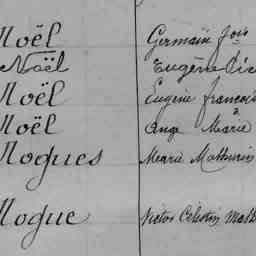 Noël Germain Jois
Noël Eugène
Noël Eugène françois
Noël Ange Marie
Nogues Marie Mathurin
Nogue Victor Célestin Math